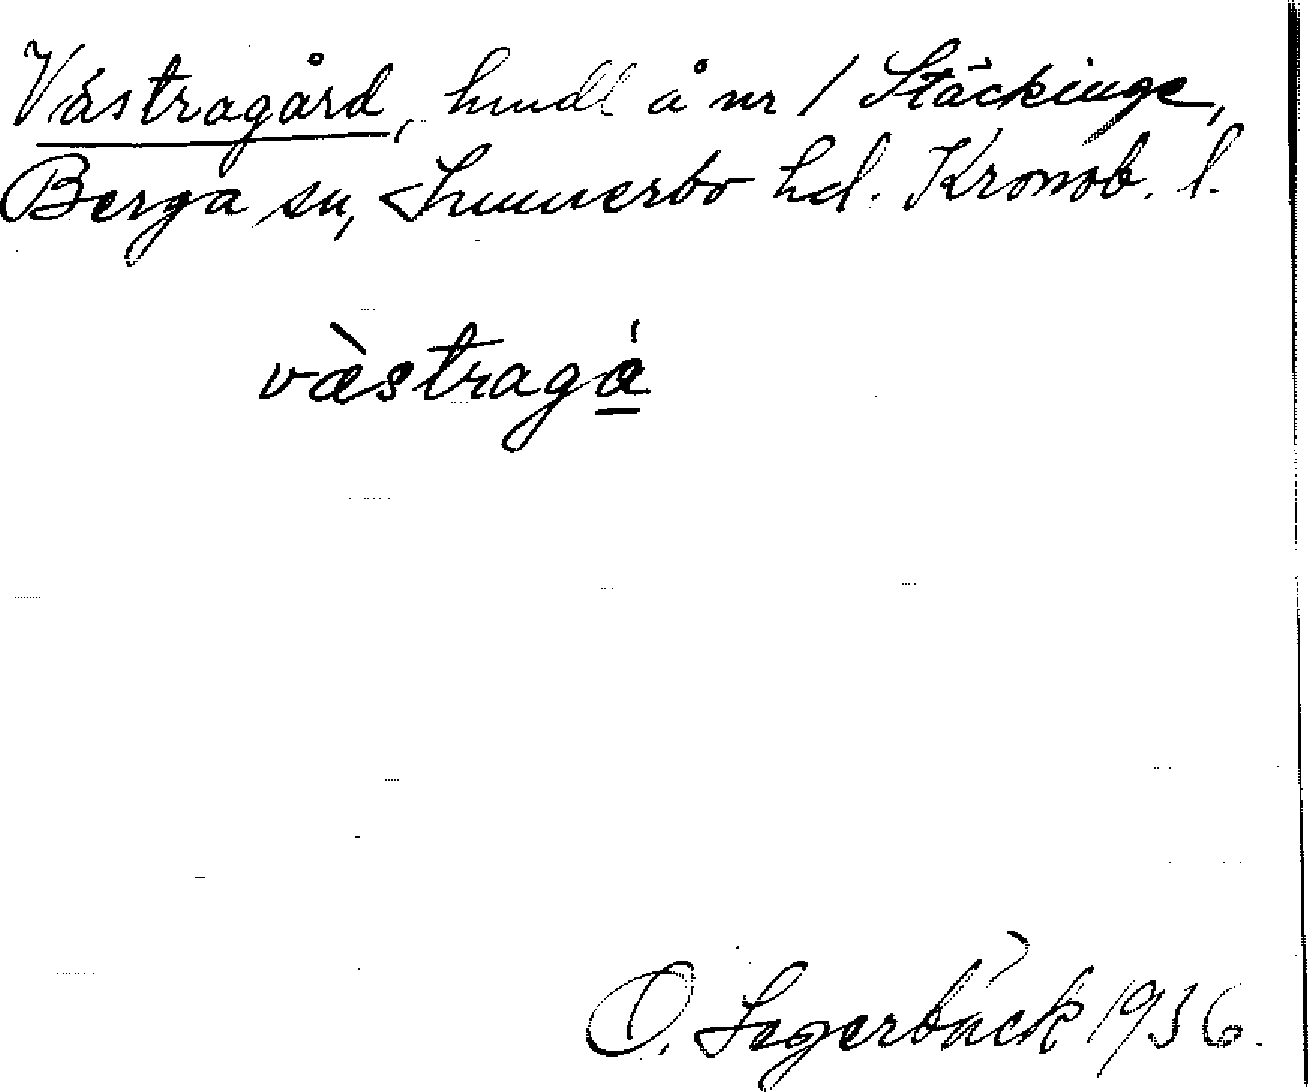 Västragård, hmdl å nr 1 Stäckinge,
Berga sn, Sunnerbo hd. Kronob. l.
væ̀stragá
O. Segerbäck 1936.